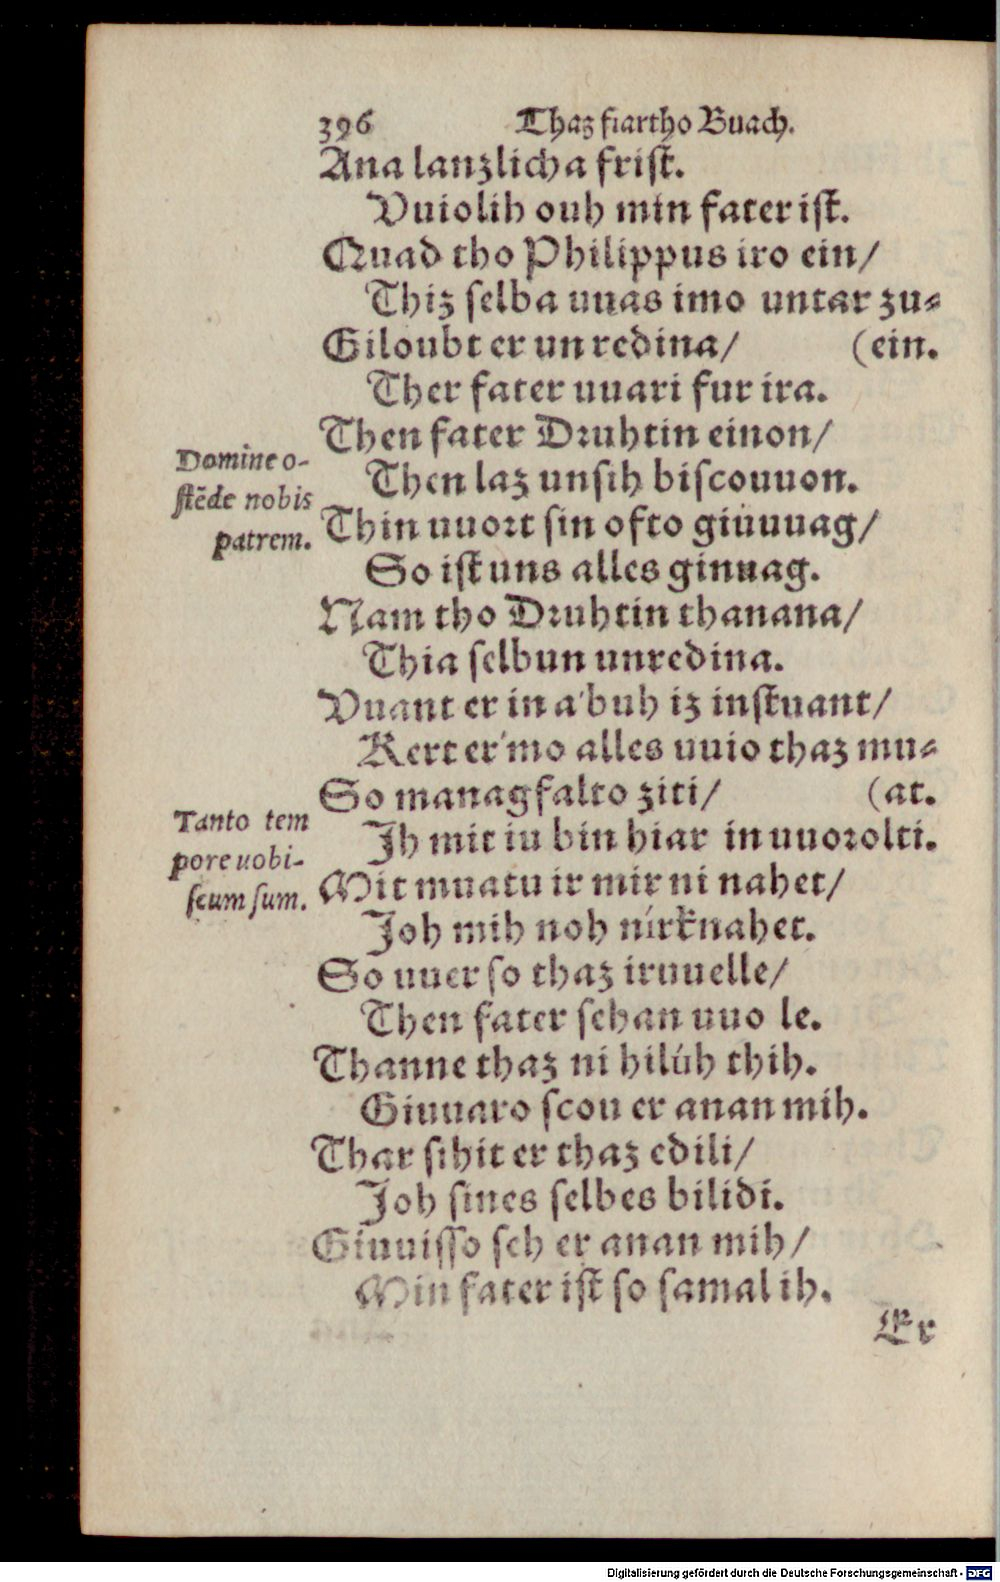 396 Thaz fiartho Buach.
Ana lanzlicha frist.
Vuiolih ouh min fater ist.
Quad tho Philippus iro ein/
Thiz selba uuas imo untar zu⸗
Giloubt er un redina/ (ein.
Ther fater uuari fur ira.
Then fater Druhtin einon/
Domine o-
stēde nobis
patrem.
Then laz unsih biscouuon.
Thin uuort sin ofto giuuuag/
So ist uns alles ginuag.
Nam tho Druhtin thanana/
Thia selbun unredina.
Vuant er in a'buh iz instuant/
Kert er'mo alles uuio thaz mu⸗
So managfalto ziti/ (at.
Tanto tem
pore uobi-
scum sum.
Jh mit iu bin hiar in uuorolti.
Mit muatu ir mir ni nahet/
Joh mih noh nírknahet.
So uuer so thaz iruuelle/
Then fater sehan uuo le.
Thanne thaz ni hilúh thih.
Giuuaro scou er anan mih.
Thar sihit er thaz edili/
Joh sines selbes bilidi.
Giuuisso seh er anan mih/
Min fater ist so samal ih.
Er
Digitalisierung gefördert durch die Deutsche Forschungsgemeinschaft - DFG